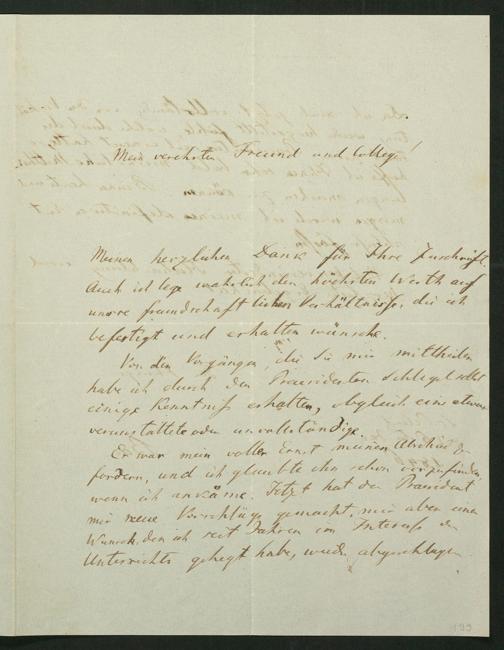 Mein verehrter Freund und College!
Meinen herzlichen Dank für Ihre Zuschrift.
Auch ich lege wahrlich den höchsten Werth auf
unsre freundschaftlichen Verhältnisse, die ich
befestigt und erhalten wünsche.
Von den Vorgängen, die Sie mir mittheilen
habe ich durch den Praesidenten Schlegel selbst
einige Kenntniß erhalten, obgleich eine etwas
verunstaltete oder unvollständige.
Es war mein voller Ernst meinen Abschied zu
fordern, und ich glaubte ihn schon vorzufinden,
wenn ich ankäme. Jetzt hat der Praesident
mir neue Vorschläge gemacht, mir aber einen
Wunsch, den ich seit Jahren im Interesse des
Unterrichts gehegt habe, wieder abgeschlagen
199